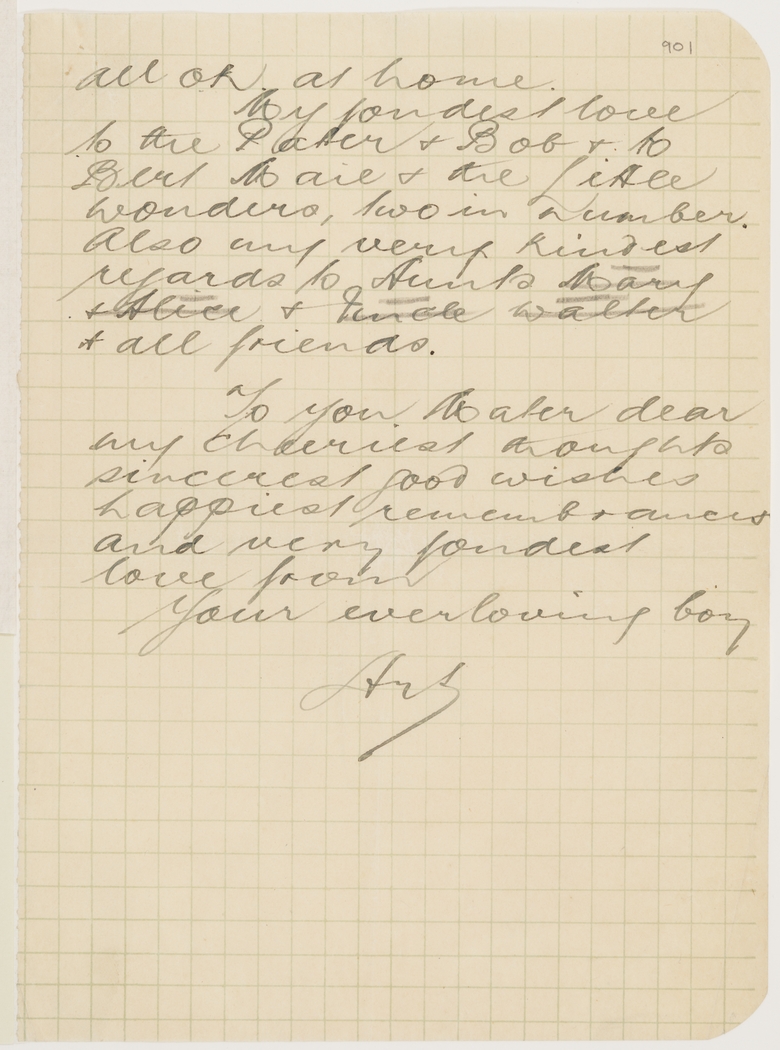 901
all OK. at home.
My fondest love
to the Pater & Bob & to
Bert Maie & the little
wonders, two in number.
Also my very kindest
regards to Aunts Mary
& Alice & Uncle Walter
& all friends.
To you Mater dear
my cheeriest thoughts
sincerest good wishes
happiest remembrances
and very fondest
love from
Your everloving boy
Art